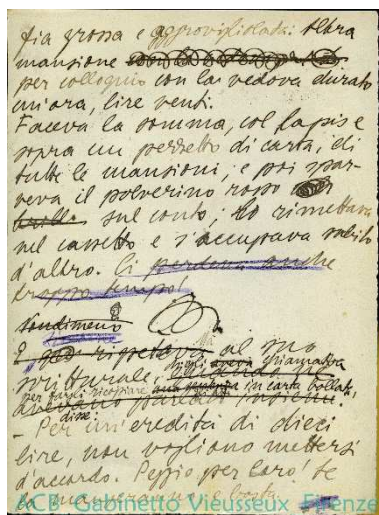 fia grossa e aggrovigliata: Altra
mansione
per colloquio con la vedova durato
un'ora, lire venti.
Faceva la somma, col lapis e
sopra un pezzetto di carta, di
tutte le mansioni; e poi spar-
geva il polverino rosso
sul conto; lo rimetteva
nel cassetto e s'accupava subito
d'altro. Ci perdeva anche
troppo tempo!
E al suo
scritturale,
per fargli ricopiare in carta bollata,
disse:
- Per un'eredità di dieci
lire, non vogliono mettersi
d'accordo. Peggio per loro! Se
la e basta.
ACB Gabinetto Vieusseux Firenze